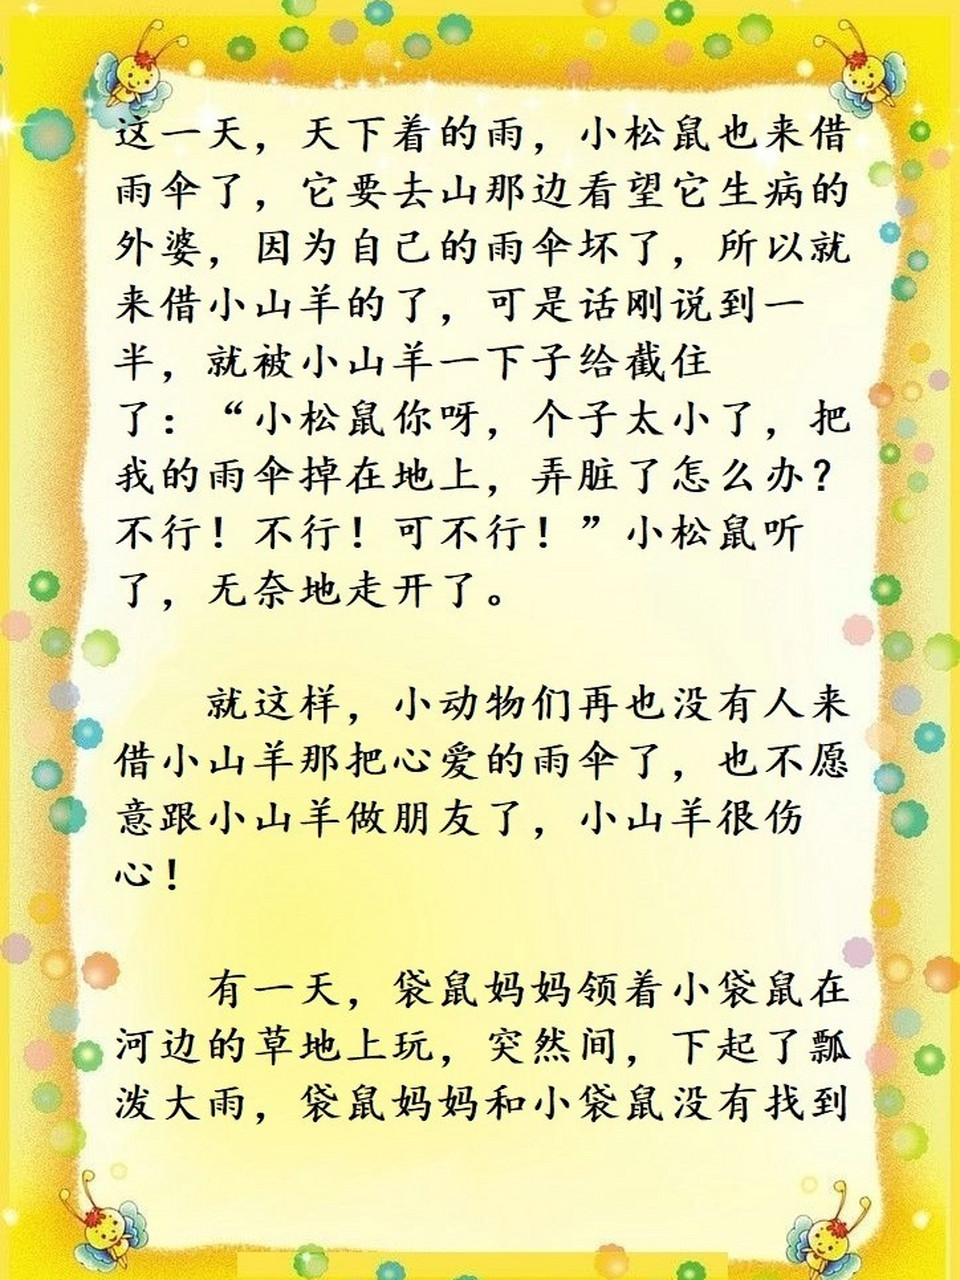 这一天，天下着的雨，小松鼠也来借
雨伞了，它要去山那边看望它生病的
外婆，因为自己的雨伞坏了，所以就
来借小山羊的了，可是话刚说到一
半，就被小山羊一下子给截住
了：“小松鼠你呀，个子太小了，把
我的雨伞掉在地上，弄脏了怎么办？
不行！不行！可不行！”小松鼠听
了，无奈地走开了。
就这样，小动物们再也没有人来
借小山羊那把心爱的雨伞了，也不愿
意跟小山羊做朋友了，小山羊很伤
心！
有一天，袋鼠妈妈领着小袋鼠在
河边的草地上玩，突然间，下起了瓢
泼大雨，袋鼠妈妈和小袋鼠没有找到